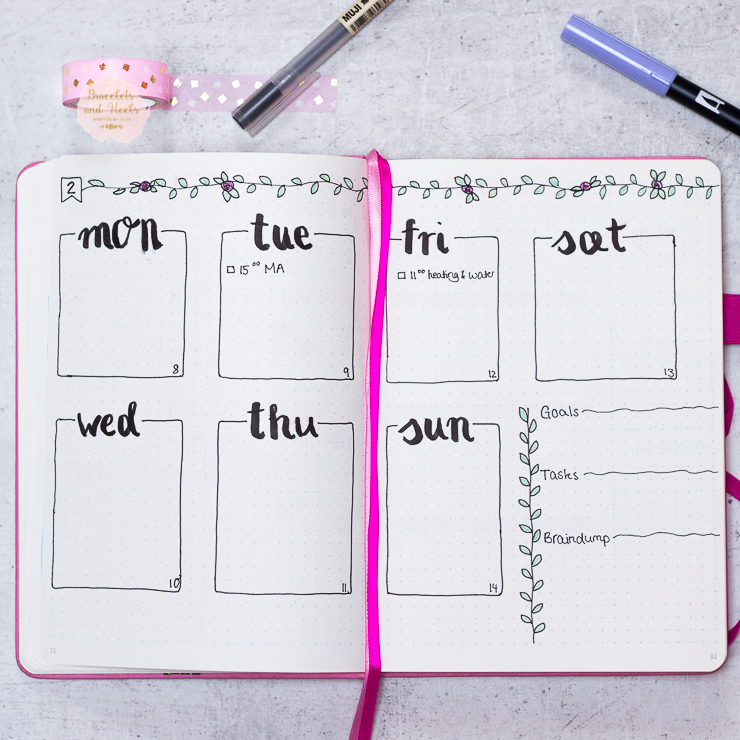 MUJI
Bracelets
and Heels
WRITTEN BY JULIA
2
mon
8
tue
15⁰⁰ MA
9
wed
10
thu
11
fri
11⁰⁰ heating & water
12
sat
13
sun
14
Goals
Tasks
Braindump
31
32